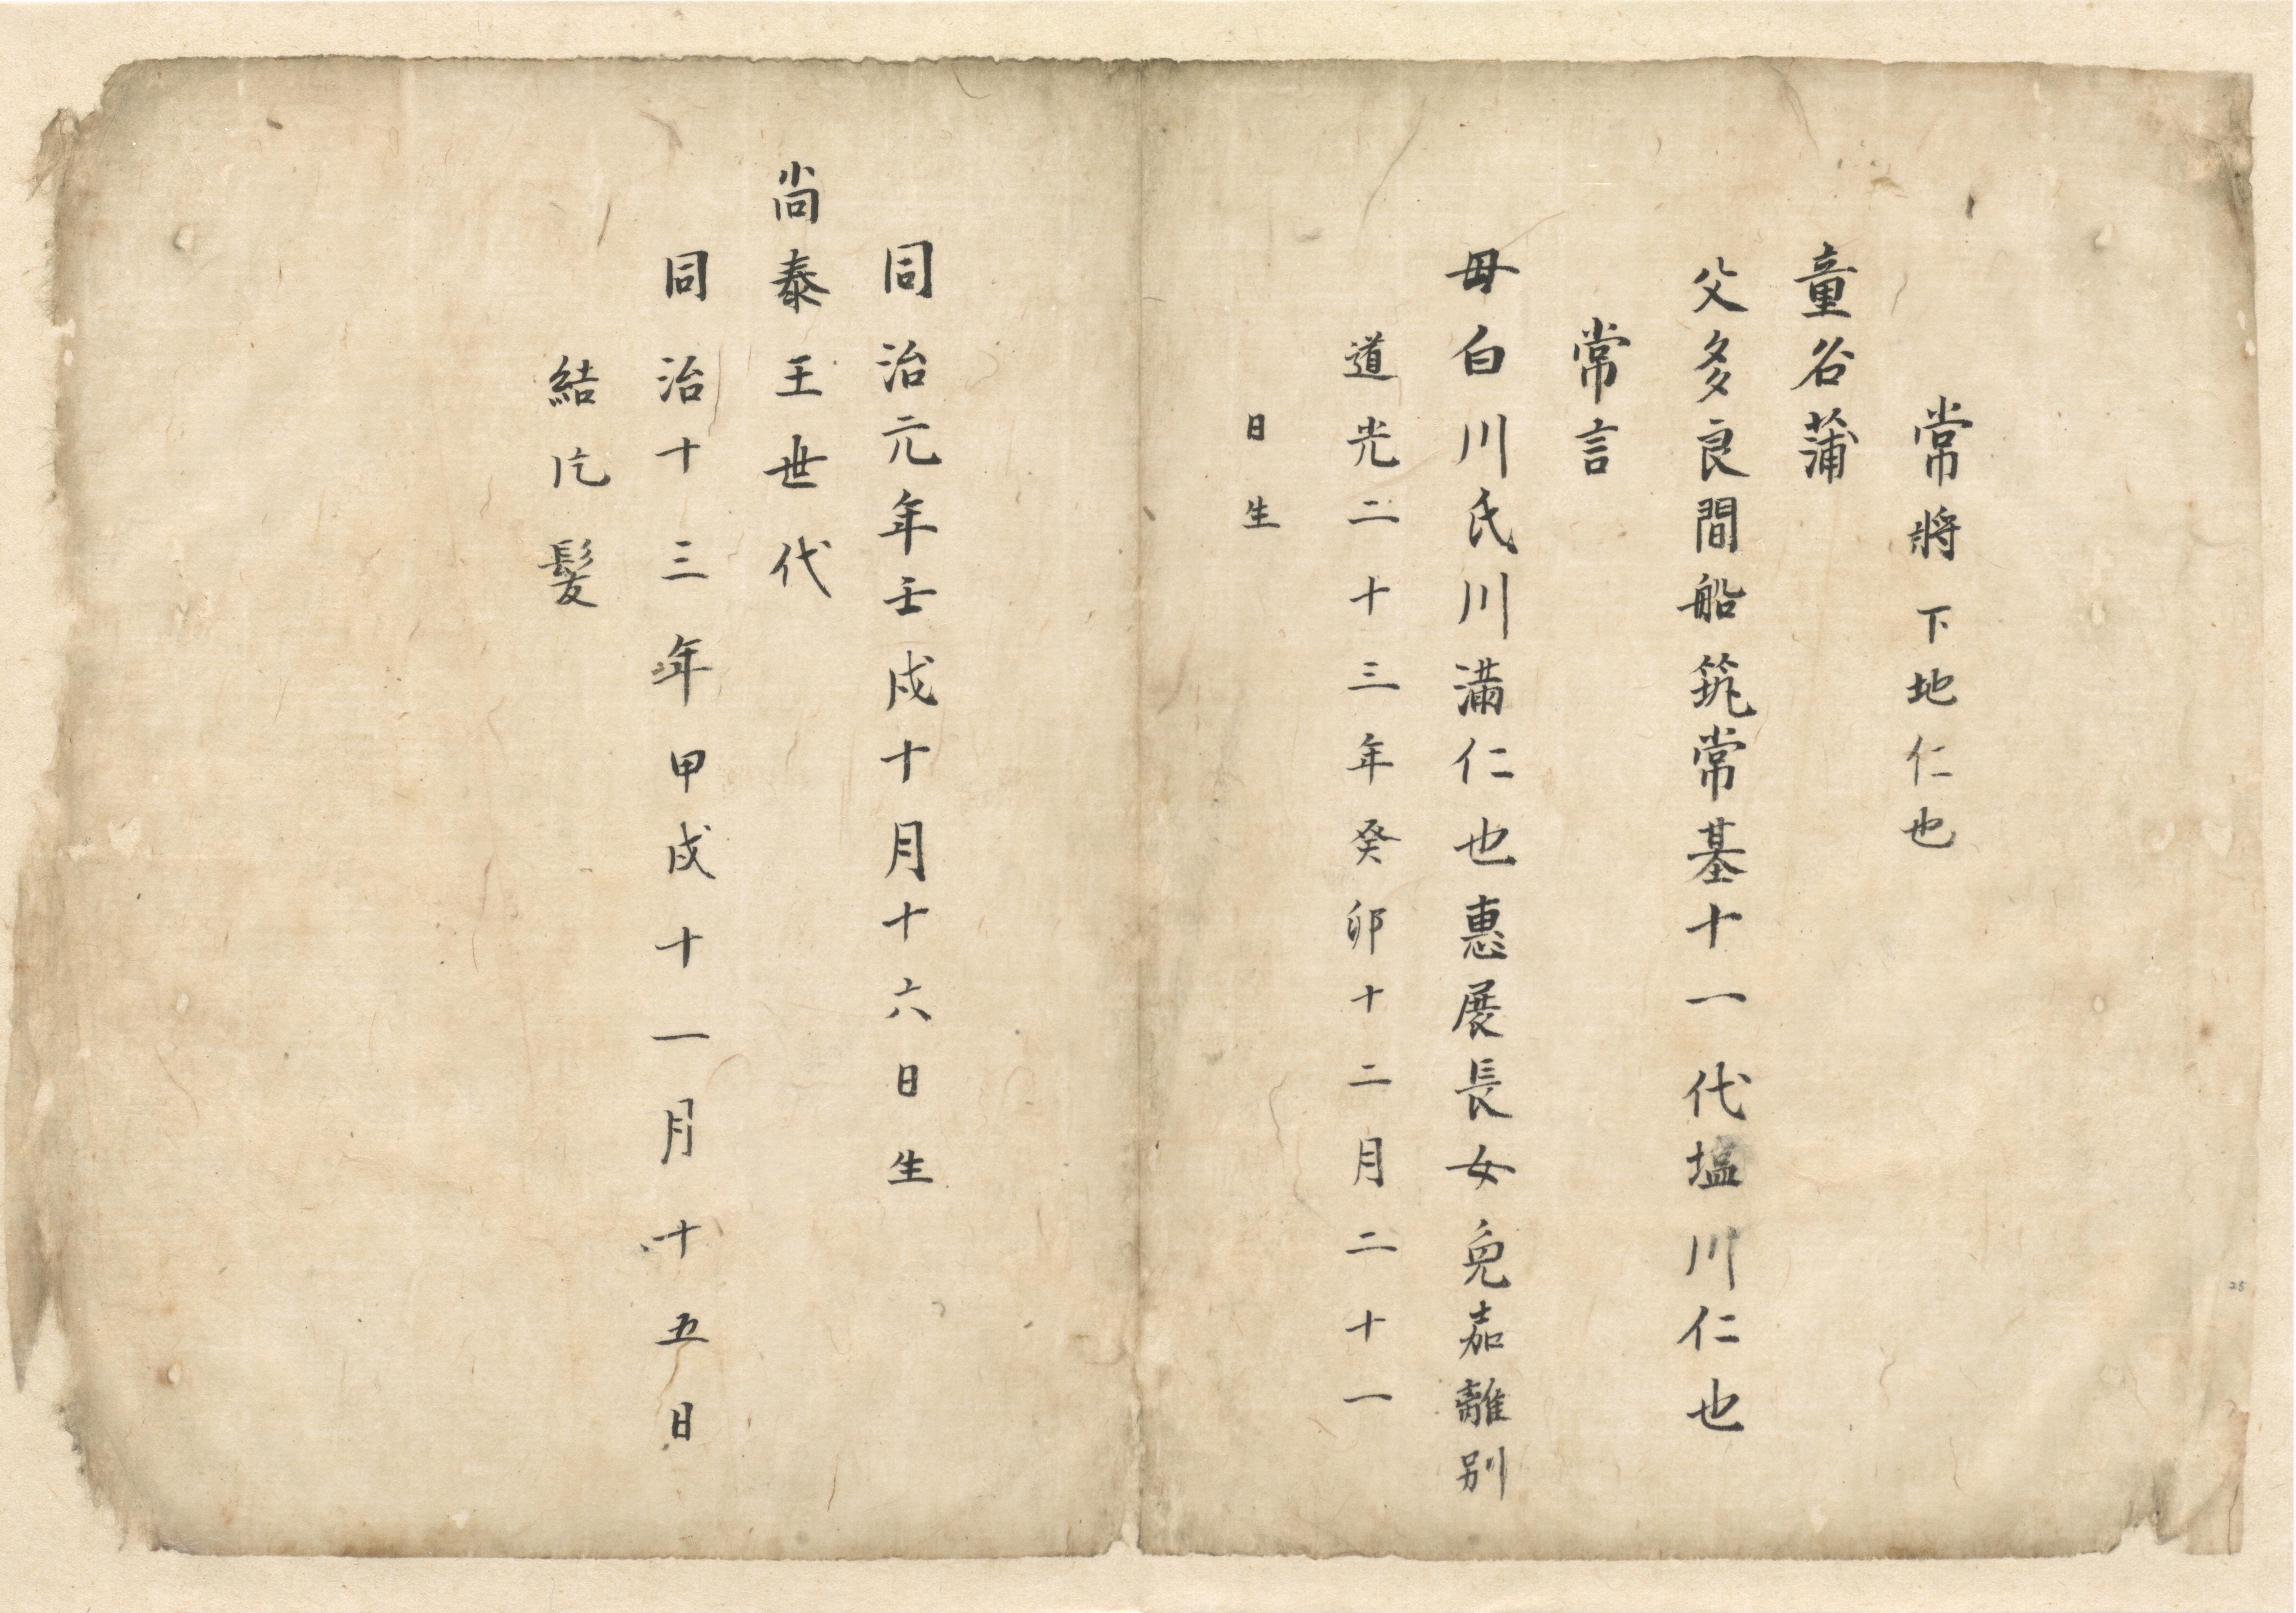 常將下地仁也
童名蒲
父多良間船筑常基十一代塩川仁也
常言
母白川氏川満仁也惠展長女免嘉離別
道光二十三年癸卯十二月二十一
日生
同治元年壬戌十月十六日生
尚泰王世代
同治十三年甲戌十一月十五日
結片髪
25